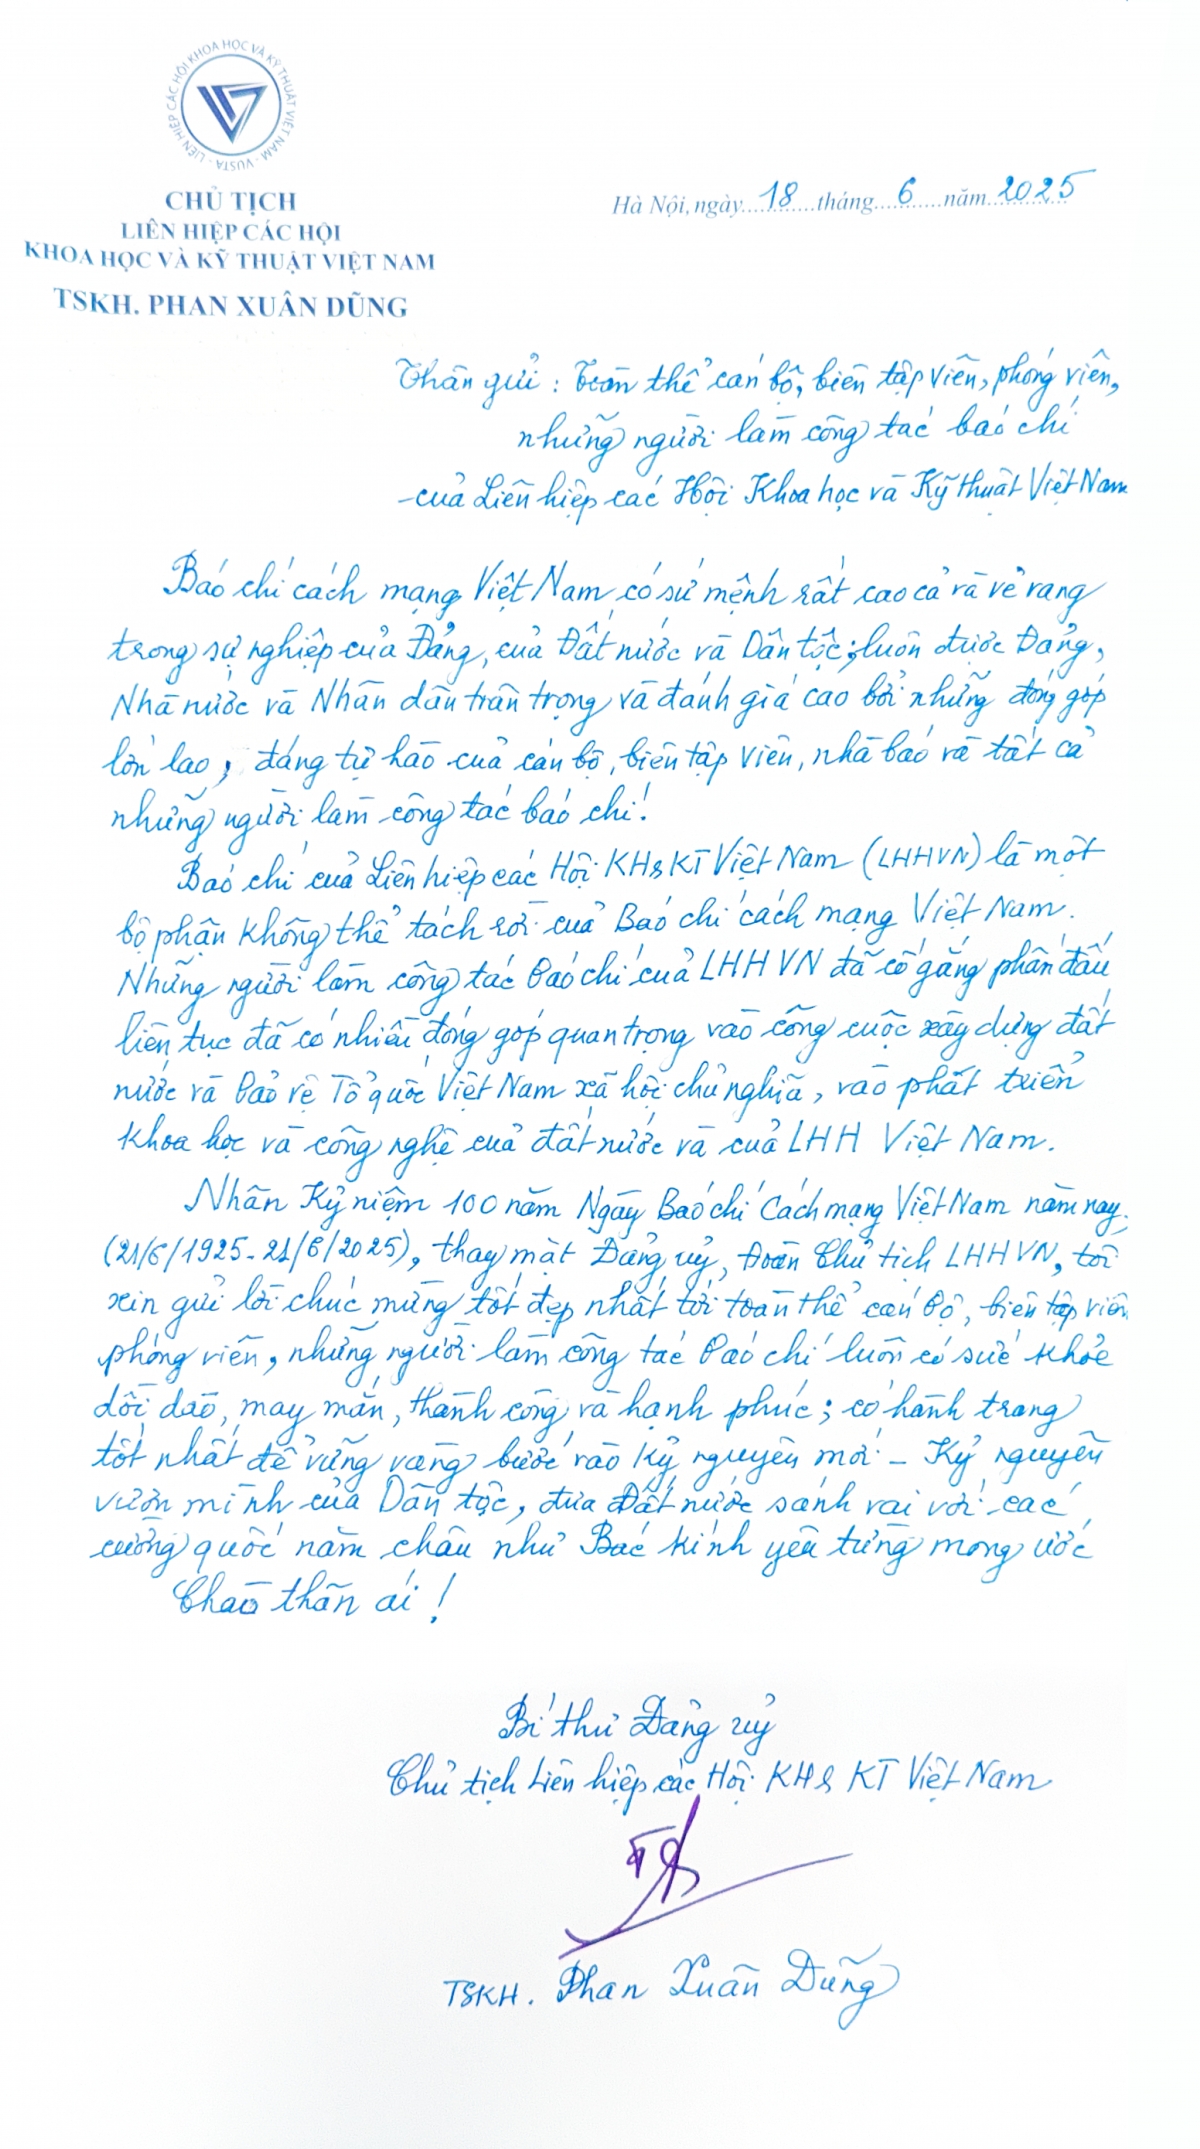 LIÊN HIỆP CÁC HỘI KHOA HỌC VÀ KỸ THUẬT VIỆT NAM - VUSTA -
CHỦ TỊCH
LIÊN HIỆP CÁC HỘI
KHOA HỌC VÀ KỸ THUẬT VIỆT NAM
TSKH. PHAN XUÂN DŨNG
Hà Nội, ngày....18....tháng....6....năm..2025
Thân gửi: Toàn thể cán bộ, biên tập viên, phóng viên,
những người làm công tác báo chí
của Liên hiệp các Hội Khoa học và Kỹ thuật Việt Nam
Báo chí cách mạng Việt Nam có sứ mệnh rất cao cả và vẻ vang
trong sự nghiệp của Đảng, của Đất nước và Dân tộc; luôn được Đảng,
Nhà nước và Nhân dân trân trọng và đánh giá cao bởi những đóng góp
lớn lao, đáng tự hào của cán bộ, biên tập viên, nhà báo và tất cả
những người làm công tác báo chí!
Báo chí của Liên hiệp các Hội KH&KT Việt Nam (LHHVN) là một
bộ phận không thể tách rời của Báo chí cách mạng Việt Nam.
Những người làm công tác báo chí của LHHVN đã cố gắng phấn đấu
liên tục đã có nhiều đóng góp quan trọng vào công cuộc xây dựng đất
nước và bảo vệ Tổ quốc Việt Nam xã hội chủ nghĩa, vào phát triển
khoa học và công nghệ của đất nước và của LHH Việt Nam.
Nhân kỷ niệm 100 năm Ngày Báo chí Cách mạng Việt Nam năm nay
(21/6/1925-21/6/2025), thay mặt Đảng uỷ, Đoàn Chủ tịch LHHVN, tôi
xin gửi lời chúc mừng tốt đẹp nhất tới toàn thể cán bộ, biên tập viên
phóng viên, những người làm công tác báo chí luôn có sức khỏe
dồi dào, may mắn, thành công và hạnh phúc; có hành trang
tốt nhất để vững vàng bước vào kỷ nguyên mới - Kỷ nguyên
vươn mình của Dân tộc, đưa Đất nước sánh vai với các
cường quốc năm châu như Bác kính yêu từng mong ước
Chào thân ái!
Bí thư Đảng uỷ
Chủ tịch Liên hiệp các Hội KH& KT Việt Nam
TSKH. Phan Xuân Dũng